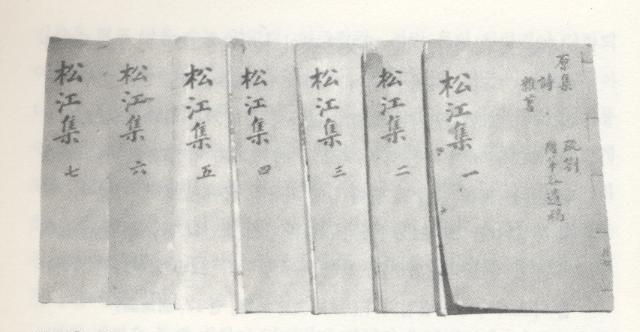 原集
詩
雜著
松江集 一
松江集 二
松江集 三
松江集 四
松江集 五
松江集 六
松江集 七